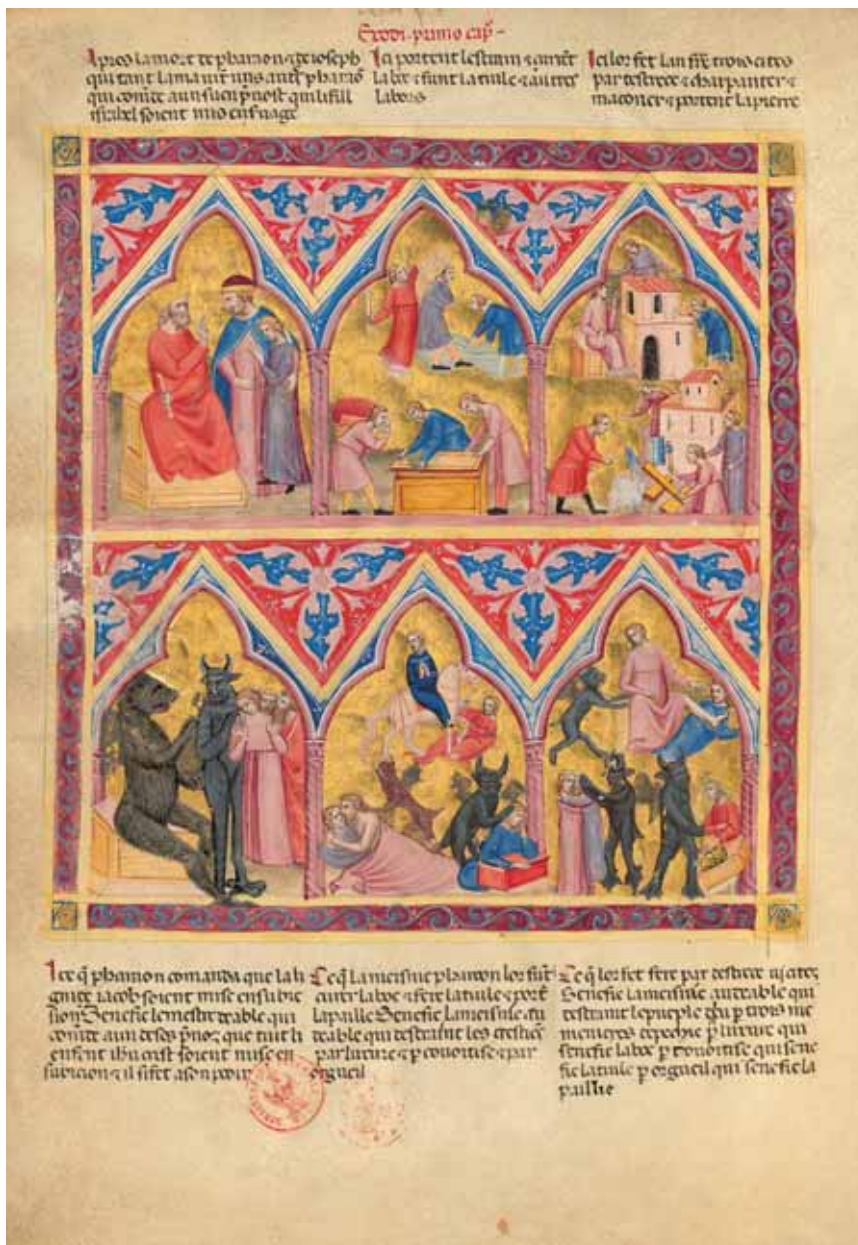 Exodi. primo cap̄
Apres la mort de pharaon ⁊ de ioseph
qui tant lama uint uns autre pharaō
qui comāde a un suen p̄uost qui li fill
israhel soient mis en seruage
Ici portent lestraim ⁊
la boe ⁊ funt la tiule ⁊ autres
labors
Ici lor fet lan fere trois cites
par destrece ⁊ charpanter ⁊
maconer ⁊ portent la pierre
Ice q̄ pharaon comanda que la li
gniee iacob soient mise en subiec
sion Senefie le mestre deable qui
comāde a un de ses p̄uoz que tuit li
enfent ihu crist soient mise en
subiection ⁊ il si fet a son pooir
Ce q̄ la meisnie pharaon lor funt
la boe ⁊ fere la tiule ⁊ port̄
la paille Senefie la meisnie au
deable qui destraint les crestiens
par luxure ⁊ p couoitise ⁊ par
orgueil
Ce q̄ lor fet fere par destrece iij cites
Senefie la meisnie au deable qui
destraint le pueple deu p trois
de pechie p luxure qui
senefie la boe p couoitise qui sene
fie la tiule p orgueil qui senefie la
paillie